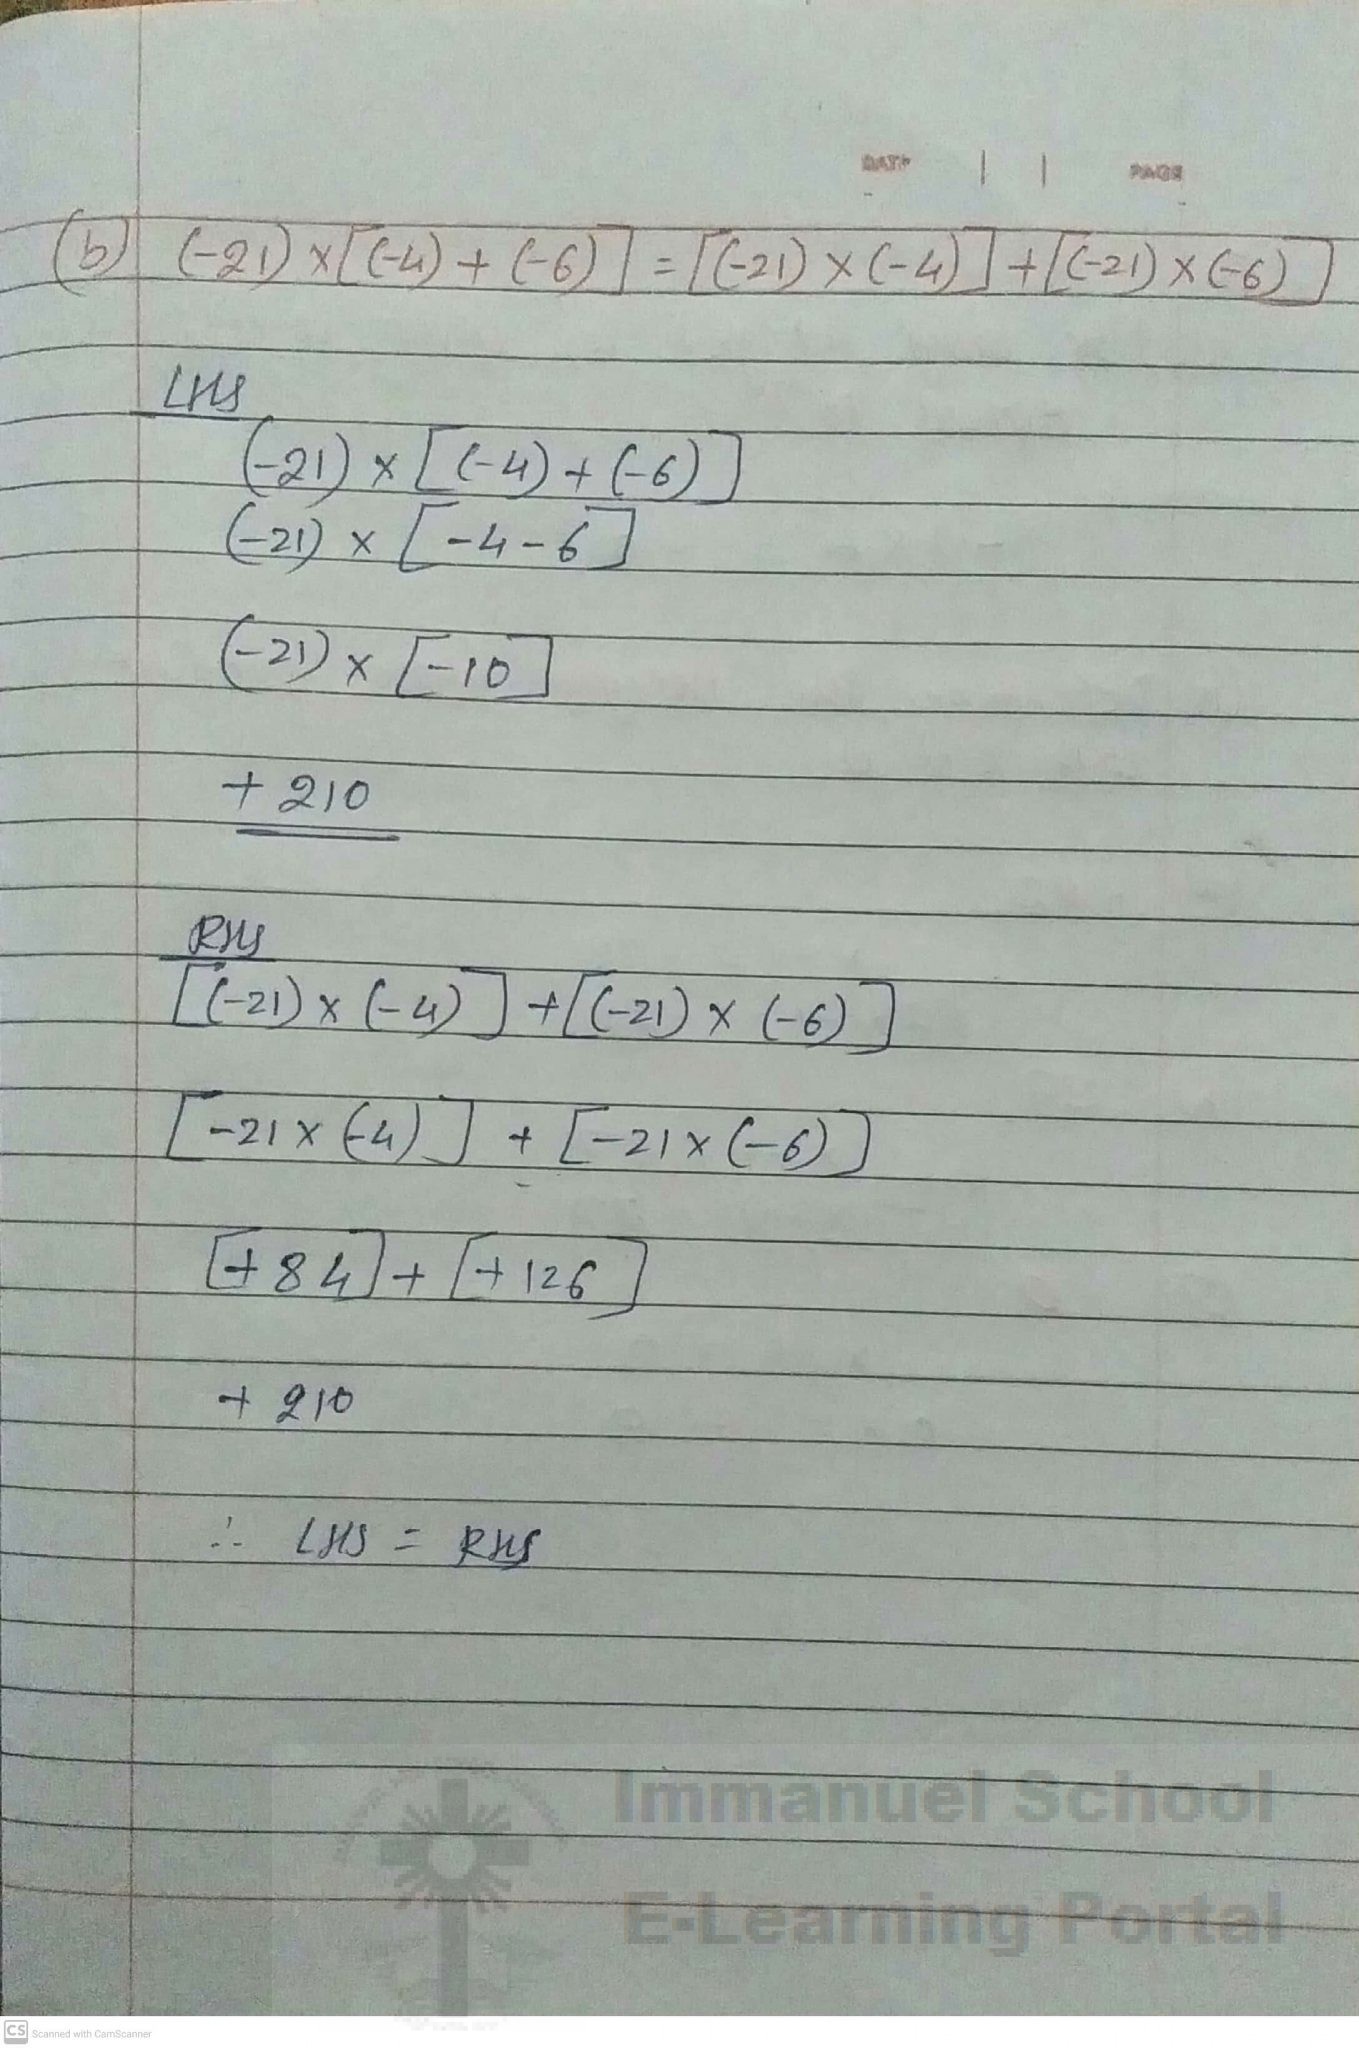 DATE | | PAGE
(b) (-21) x [(-4) + (-6)] = [(-21) x (-4)] + [(-21) x (-6)]
LHS
(-21) x [(-4) + (-6)]
(-21) x [-4-6]
(-21) x [-10]
+ 210
RHS
[(-21) x (-4)] + [(-21) x (-6)]
[-21 x (-4)] + [-21 x (-6)]
[+84] + [+126]
+ 210
∴ LHS = RHS
Immanuel School
E-Learning Portal
CS Scanned with CamScanner